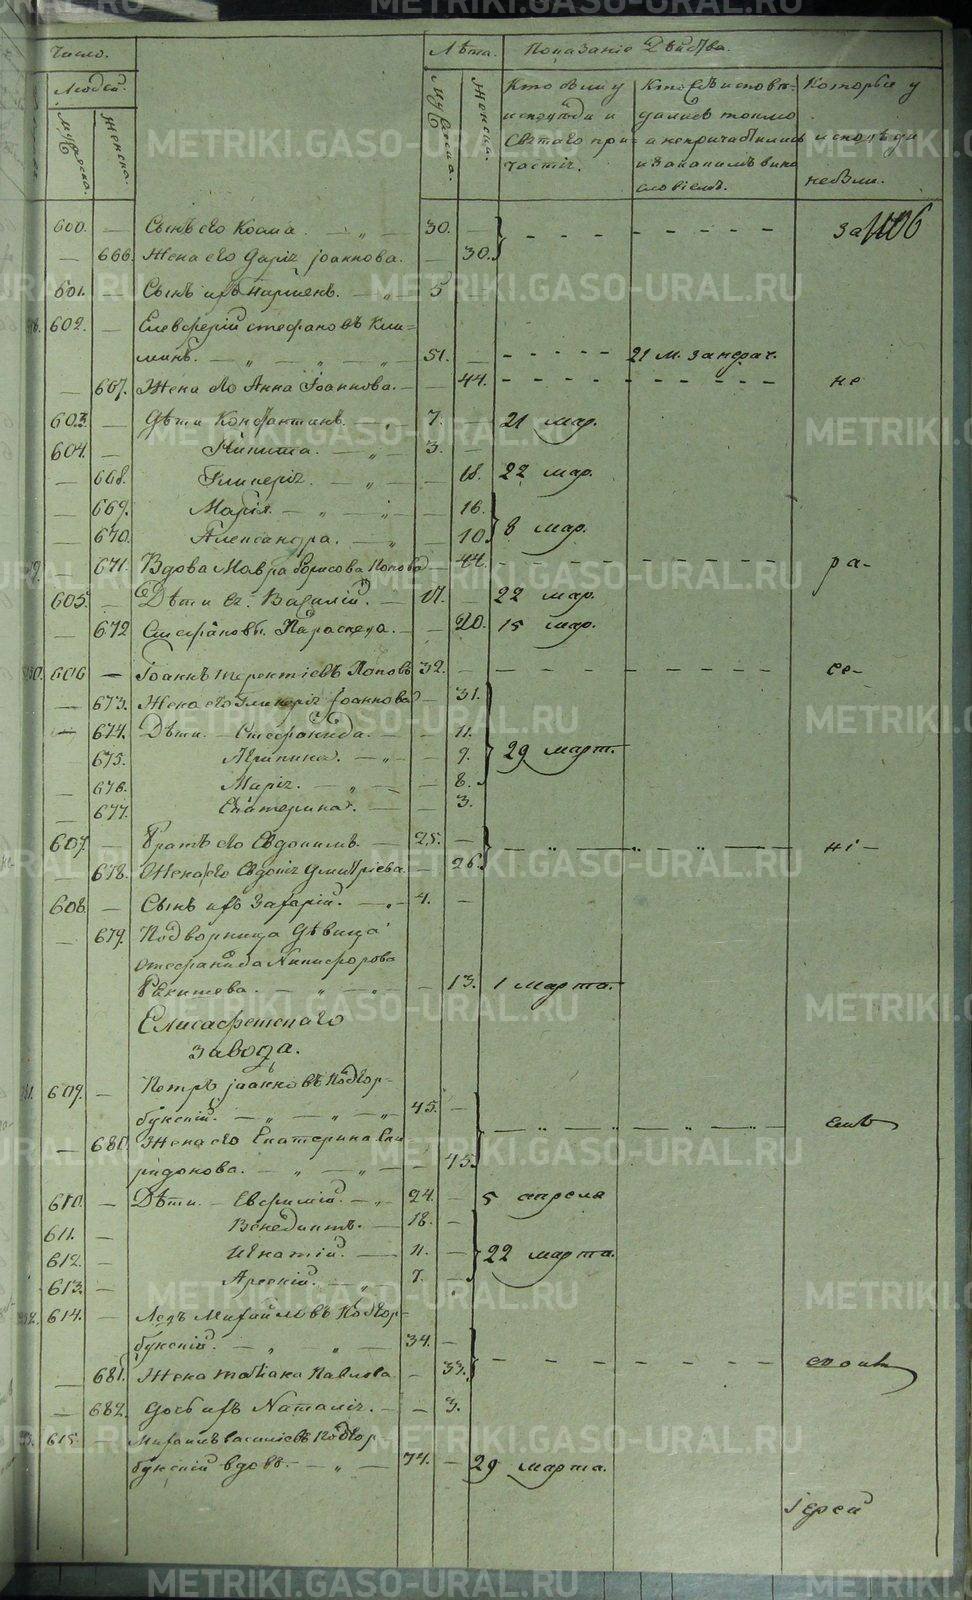 METRIKI.GASO-URAL.RU
Число.
Лѣта.
Показаніе Дѣйства.
Людей.
Мужеска.
Женска.
Мужеска.
Женска.
Кто были у
исповѣди и
Святаго при-
частія.
Кто исповѣ-
дались токмо
а непричастились
и за какимъ вино-
словіемъ.
Которые у
исповѣди
небыли.
600. — Сынъ его Косма. — „ — 30. —
за 1106
— 666. Жена его Дарія Іоаннова. — 30.
601. — Сынъ ихъ — „ — 5 —
602. — Елевферій Стефановъ Кли-
минъ. — „ — „ — „ — 51. — 21 м.
— 667. Жена его Анна Іоаннова. — — 44. не
603. — Дѣти Константинъ. — „ — 7. — 21 мар.
604. — Никита. — „ — 3. —
— 668. Гликерія. — „ — — 18. 22 мар.
— 669. Марія. — „ — „ — 16.
8 мар.
— 670. Александра. — „ — 10.
— 671. Вдова Мавра Борисова Попова — 44. ра-
605. — Дѣти ея: Василій. — 17. — 22 мар.
— 672 Стефановы. Параскева. — — 20. 15 мар.
606 — Іоаннъ Терентіевъ Поповъ 32. — се-
— 673. Жена его Гликерія Іоаннова — 31.
— 674. Дѣти. — Стефанида. — — 11.
29 март.
675. Агрипина. — „ — — 9.
— 676. Марія. — „ — — 8.
— 677. Екатерина. — — 3.
607. — Братъ его Евдокимъ. — 25. —
ні-
678. Жена его Евдокія Димитріева — 26.
608. — Сынъ ихъ Захарій. — „ — 4. —
— 679. Подворница Дѣвица
Стефанида Никифорова
— „ — „ — — 13. 1 марта.
Елисаветскаго
завода.
609. — Петръ Іоанновъ Подкор-
бунскій. — „ — „ — „ — 45. —
емъ
— 680. Жена его Екатерина Спи-
ридонова. — „ — „ — — 45.
610. — Дѣти. — Евфимій. — „ — 24. — 5 апреля
611. — Венедиктъ. — 18. —
612. — Игнатій. — 11. — 22 марта.
613. — Арсеній. — „ — 7. —
614. — Левъ Михайловъ Подкор-
бунскій. — „ — „ — 34. —
— 681. Жена Татіана Павлова — 33.
— 682. Дочь ихъ Наталія. — — 3.
615. — Михаилъ Василіевъ Подкор
бунскій вдовъ. — „ — 74. — 29 марта.
Іерей